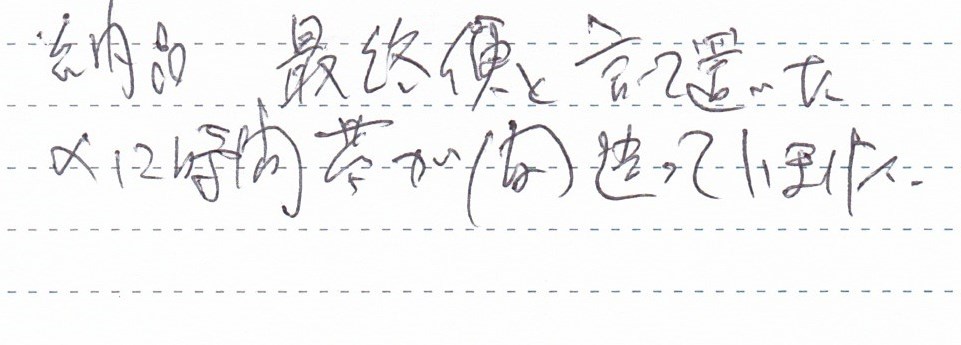 納品 最終便と言って置いた
のに時間帯が(な)違っていました.